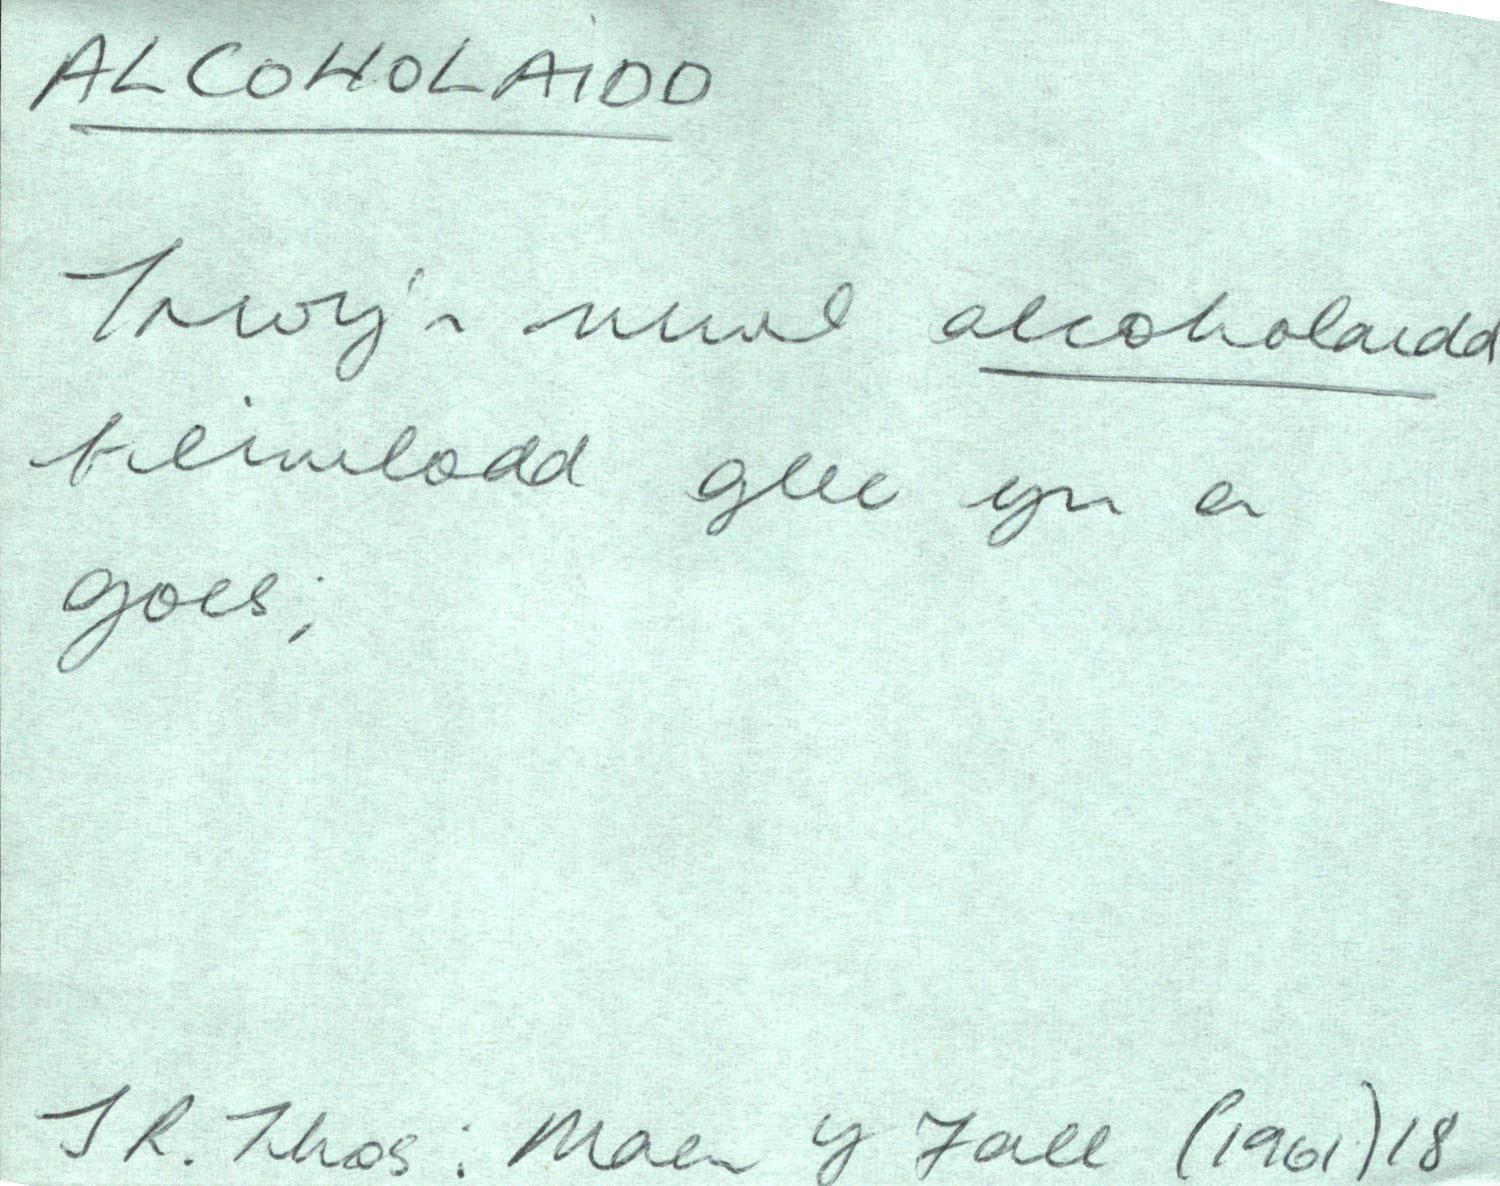 ALCOHOLAIDD
Trwy'r niwl alcoholaidd
teimlodd glec yn ei
goes;
J R. Thos: Maen y Fall (1961) 18